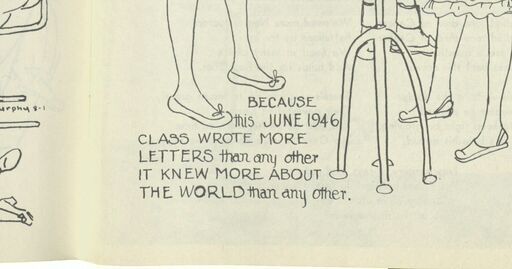 BECAUSE
this JUNE 1946
CLASS WROTE MORE
LETTERS than any other
IT KNEW MORE ABOUT
THE WORLD than any other.